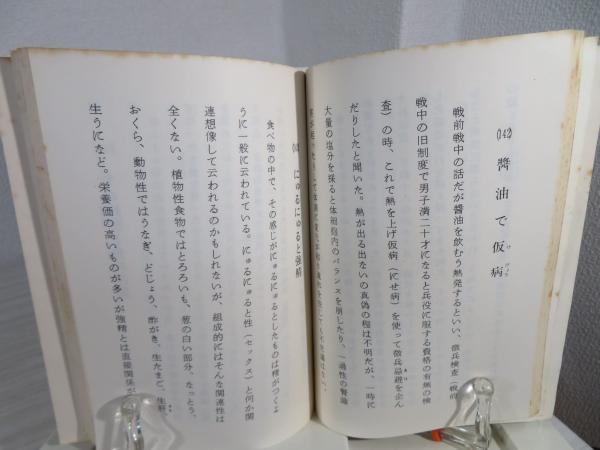 (142) 醬油で仮病
戦前戦中の話だが醬油を飲むう熱発するといい、徴兵検査（戦前
戦中の旧制度で男子満二十才になると兵役に服する資格の有無の検
査）の時、これで熱を上げ仮病（にせ病）を使って徴兵忌避を企ん
だりしたと聞いた。熱が出る出ないの真偽の程は不明だが、一時に
大量の塩分を採ると体細胞内のバランスを崩したり、一過性の腎論
にゅるにゅると強精
食べ物の中で、その感じがにゅるにゅるとしたものは精がつくよ
うに一般に云われている。にゅるにゅると性（セックス）と何か関
連想像して云われるのかもしれないが、組成的にはそんな関連性は
全くない。植物性食物ではとろろいも、葱の白い部分、なっとう、
おくら、動物性ではうなぎ、どじょう、酢がき、生たまご、生肝、
生うになど。栄養価の高いものが多いが強精とは直接関係が